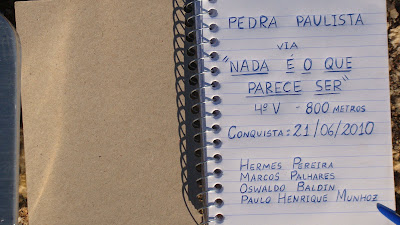 PEDRA PAULISTA
VIA
"NADA É O QUE
PARECE SER"
4º V - 800 METROS
CONQUISTA: 21/06/2010
HERMES PEREIRA
MARCOS PALHARES
OSWALDO BALDIN
PAULO HENRIQUE MUNHOZ